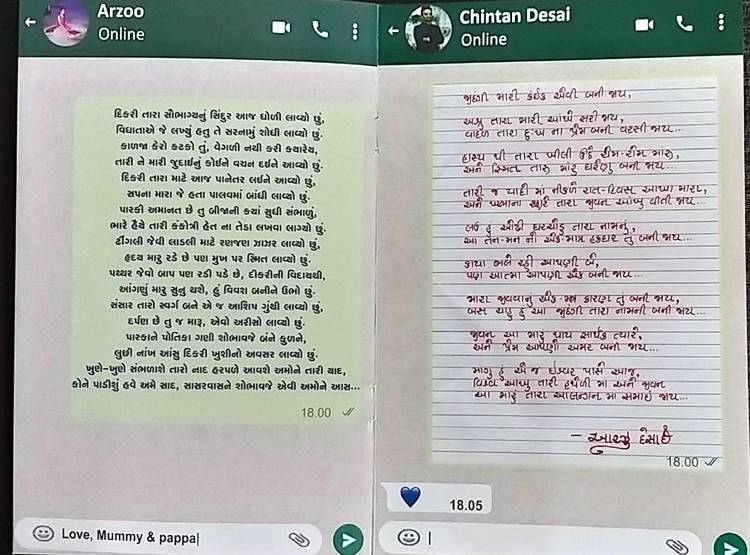 Arzoo
Online
દિકરી તારા સૌભાગ્યનું સિંદુર આજ ઘોળી લાવ્યો છું,
વિધાતાએ જે લખ્યું હતુ તે સરનામું શોધી લાવ્યો છું.
કાળજા કેરો કટકો તું, વેગળી નથી કરી ક્યારેય,
તારી ને મારી જુદાઈનું કોઈને વચન દઈને આવ્યો છું.
દિકરી તારા માટે આજ પાનેતર લઈને આવ્યો છું,
સપના મારા જે હતા પાલવમાં બાંધી લાવ્યો છું.
પારકી અમાનત છે તુ બીજાની ક્યાં સુધી સંભાળું,
ભારે હૈયે તારી કંકોત્રી હેત ના તેડા લખવા લાગ્યો છું.
ઢીંગલી જેવી લાડલી માટે રણઝણ ઝાઝર લાવ્યો છું,
હૃદય મારુ રડે છે પણ મુખ પર સ્મિત લાવ્યો છું.
પથ્થર જેવો બાપ પણ રડી પડે છે, દીકરીની વિદાયથી,
આંગણું મારુ સુનુ થશે, હું વિવશ બનીને ઉભો છું.
સંસાર તારો સ્વર્ગ બને એ જ આશિષ ગુંથી લાવ્યો છું,
દર્પણ છે તુ જ મારૂ, એવો અરીસો લાવ્યો છું.
પારકાને પોતિકા ગણી શોભાવજે બંને કુળને,
લુછી નાંખ આંસુ દિકરી ખુશીનો અવસર લાવ્યો છું.
ખુણે-ખુણે સંભળાશે તારો નાદ હરપળે આવશે અમોને તારી યાદ,
કોને પાડીશું હવે અમે સાદ, સાસરવાસને શોભાવજે એવી અમોને આસ...
18.00
Love, Mummy & pappa
Chintan Desai
Online
જીંદગી મારી કંઈક એવી બની જાય,
અશ્રુ તારા મારી આંખે સરી જાય,
વાદળ તારા દુઃખ ના પ્રેમ બની વરસી જાય...
હાસ્ય થી તારા ખીલી ઉઠે રોમ-રોમ મારું,
અને સ્મિત તારું મારું ઘરેણુ બની જાય...
તારી જ યાદી માં નીકળે રાત-દિવસ આખા મારા,
અને પામવા ખાતર તારા જીવન આખુ વીતી જાય...
લઉ હું ઓઢી ઘરચોળુ તારા નામનું,
આ તન-મન નો એક-માત્ર હકદાર તું બની જાય...
કાયા ભલે રહી આપણી બે,
પણ આત્મા આપણી એક બની જાય...
મારા જીવવાનું એક-માત્ર કારણ તું બની જાય,
બસ ચાહુ હું આ જીંદગી તારા નામની બની જાય...
જીવન આ મારું થાય સાર્થક ત્યારે,
અને પ્રેમ આપણો અમર બની જાય...
માગુ હું એ જ ઇશ્વર પાસે આજ,
વિશ્વ આખુ તારી હથેળી મા અને જીવન
આ મારું તારા આલિંગન મા સમાઇ જાય...
- આરઝુ દેસાઈ
18.00
18.05